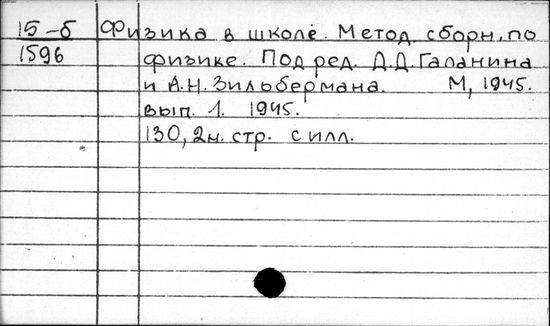 15-б Физика в школе. Метод. сборн. по
1596 физике. Под ред. Д.Д. Галанина
и А.Н. Зильбермана. М, 1945.
вып. 1. 1945.
130, 2н. стр. с илл.